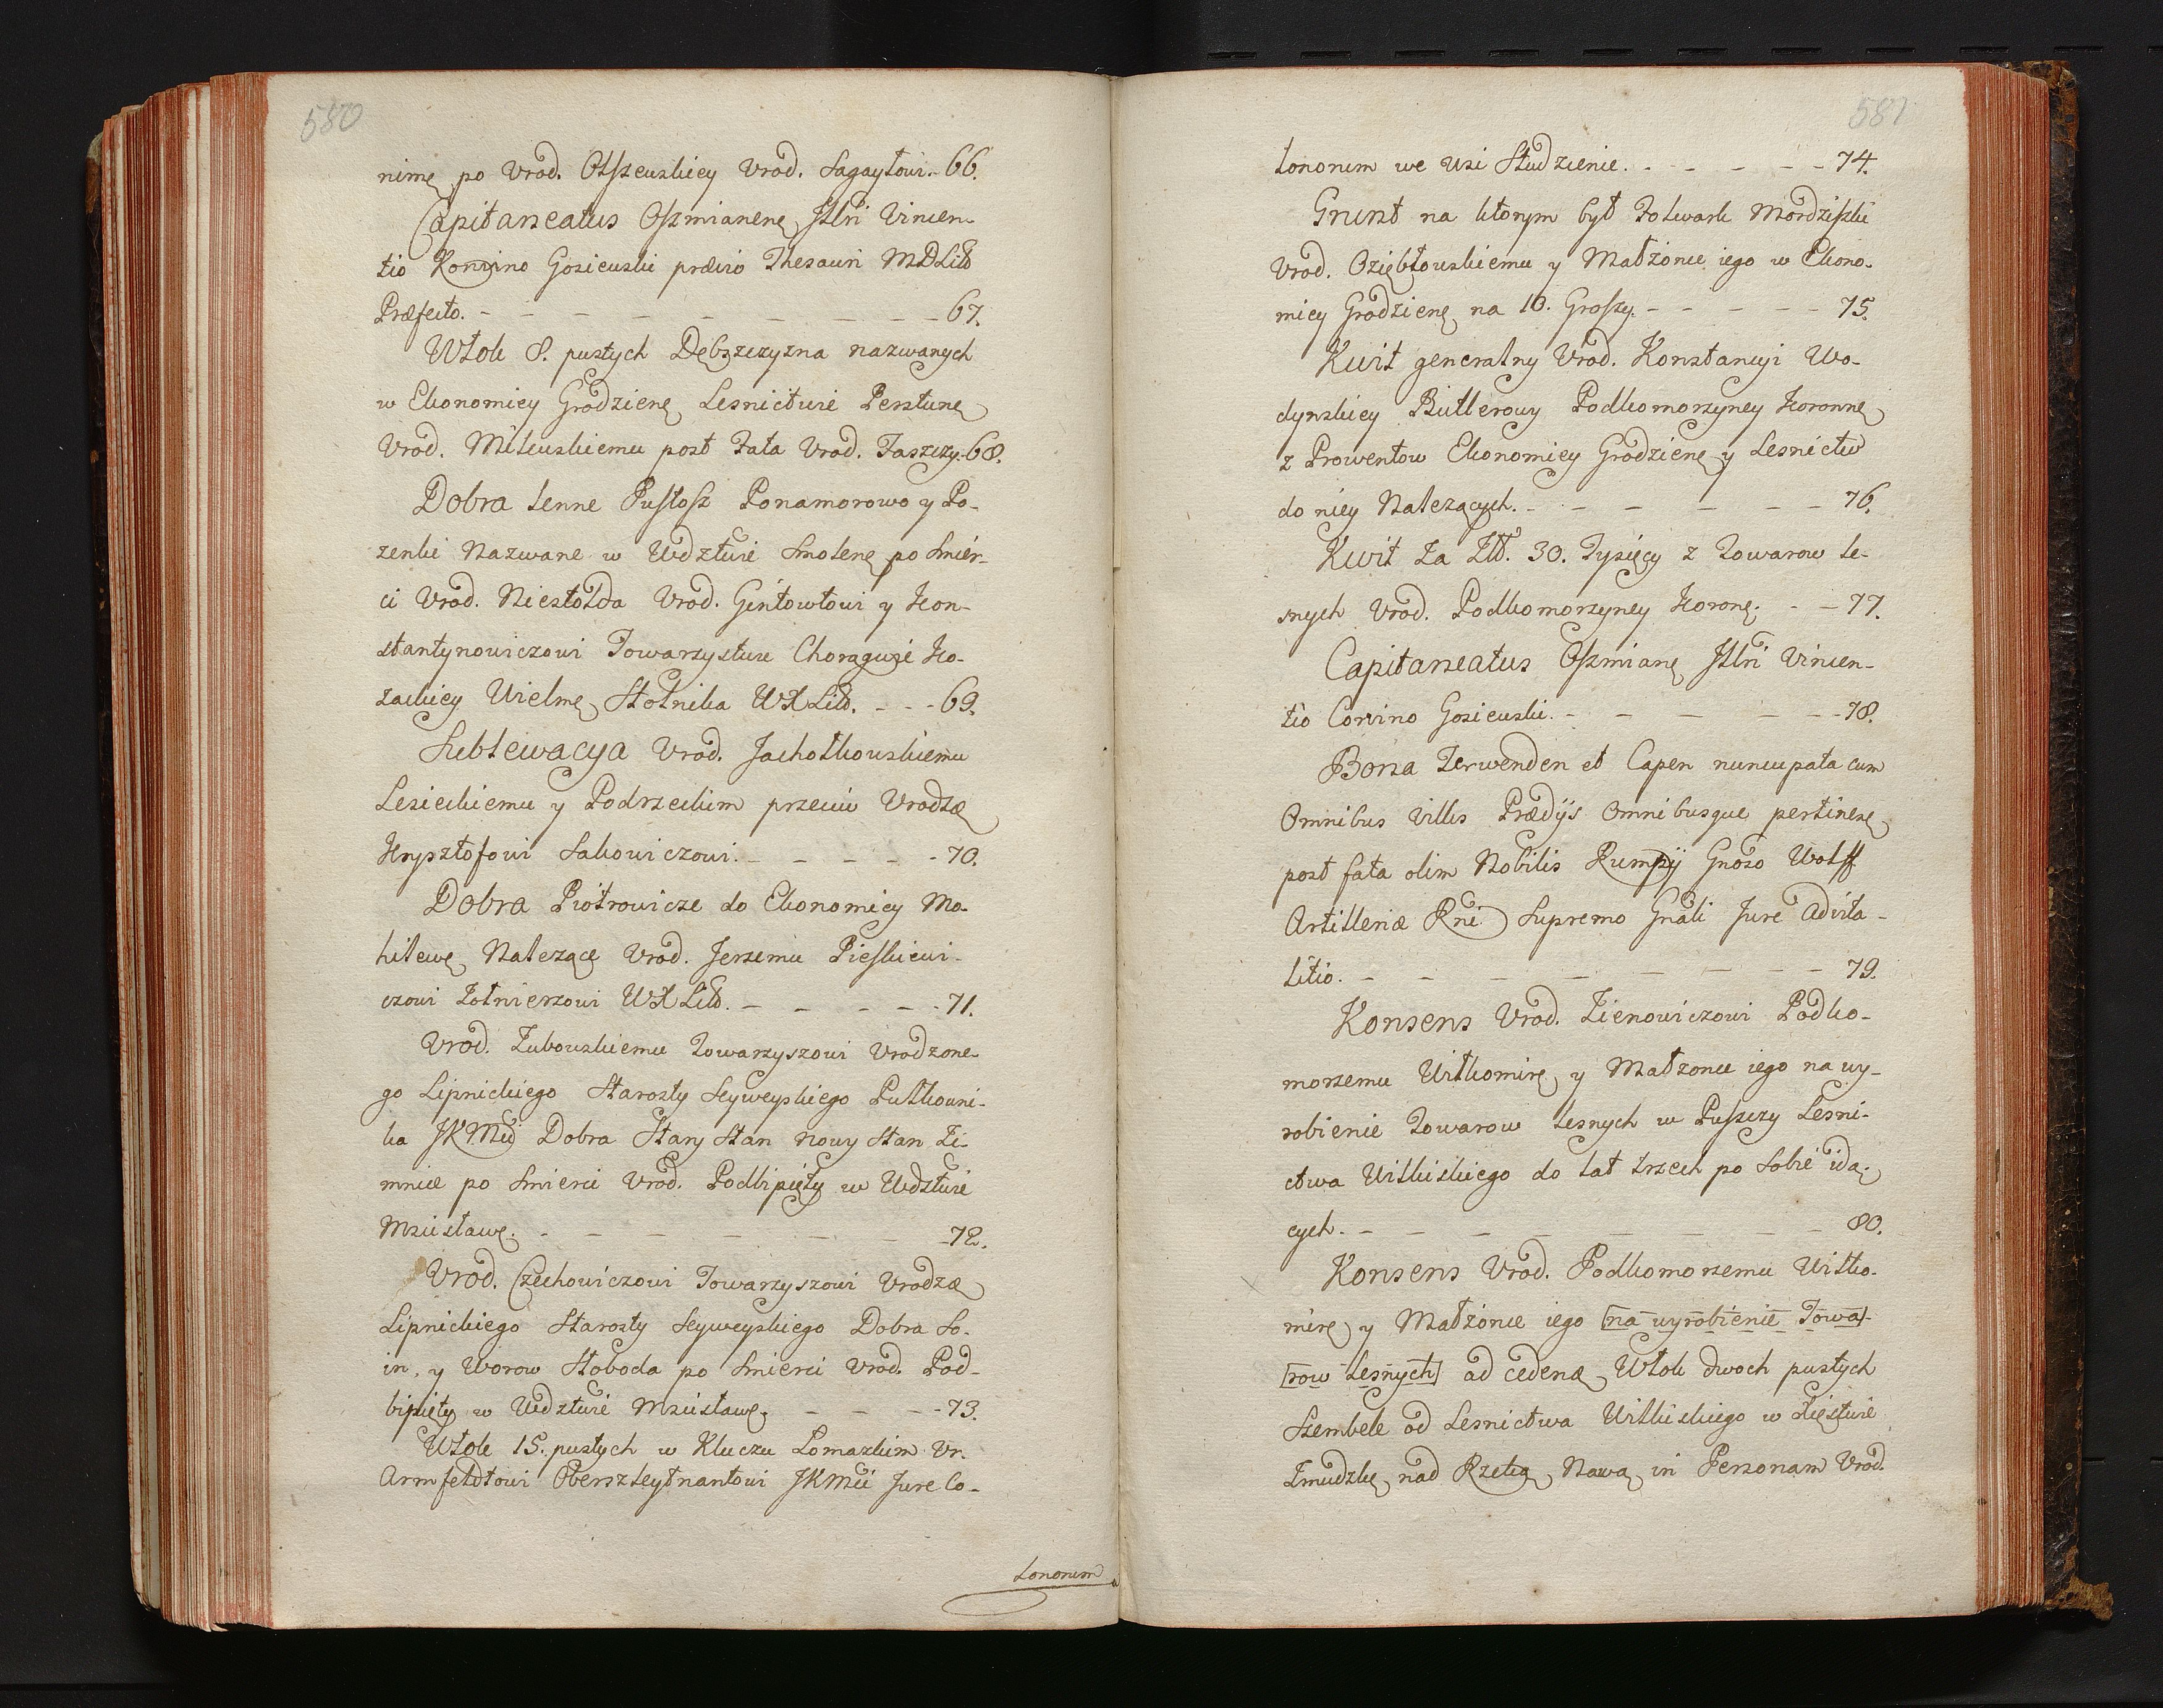 580
nimę po Vrod. Olszewskiey Vrod. Sagaytowi. - 66.
Capitaneatus Oszmianenę Jllri Vincen-
tio Korvino Gosiewski prævio Thesauri MDLitt
Præfecto. - - - - - - - - 67.
Włok 8. pustych Dębszczyzna nazwanych
w Ekonomiey Grodzienę Lesnictwie Perstunę
Vrod. Milewskiemu post Fata Vrod. Taszczy. 68.
Dobra lenne Pustosz Ponamorowo y Po-
zenki Nazwane w Wdztwie Smolenę po Smier-
ci Vrod. Niestołda Vrod. Gintowtowi y Kon-
stantynowiczowi Towarzystwu Chorągwie Ko-
zackiey Wielmę Stolnika WXLitt. - - - 69.
Sublewacya Vrod. Jachołkowskiemu
Lesieckiemu y Podrzeckim przeciw Vrodzę
Krysztofowi Sakowiczowi. - - - - - 70.
Dobra Piotrowicze do Ekonomiey Mo-
hilewę Należącę Vrod. Jerzemu Pieszkiewi-
czowi Zołnierzowi WXLitt. - - - - - 71.
Vrod. Zubowskiemu Towarzyszowi Vrodzone-
go Lipnickiego Starosty Seyweyskiego Pułkowni-
ka JKMci Dobra Stary Stan nowy Stan Zi-
mnice po Smierci Vrod. Podbipięty w Wdztwie
Mscisławę. - - - - - - - 72.
Vrod. Czechowiczowi Towarzyszowi Vrodzę
Lipnickiego Starosty Seyweyskiego Dobra So-
in, y Worow Słoboda po Smierci Vrod. Pod-
bipięty w Wdztwie Mscisławę. - - - - 73.
Włok 15. pustych w Kluczu Łomazkim Vr.
Armfeldtowi Obersztleytnantowi JKMci Jure Co-
lonorum
581
lonorum we Wsi Studzienie. - - - - - - 74.
Grunt na ktorym był Folwark Mordziszki
Vrod. Oziębłowskiemu y Małżonce iego w Ekono-
miey Grodzienę na 10. Groszy. - - - - - 75.
Kwit generalny Vrod. Konstancyi Wo-
dynskiey Butlerowy Podkomorzyney Koronnę
z Prowentow Ekonomiey Grodzienę y Lesnictw
do niey Należących. - - - - - - 76.
Kwit Za Złł. 30. Tysięcy z Towarow le-
snych Vrod. Podkomorzyney Koronę. - - 77.
Capitaneatus Oszmianę Jllri Vincen-
tio Corvino Gosiewski. - - - - - - 78.
Bona Zerwenden et Capen nuncupata cum
Omnibus Villis Prædijs Omnibusque pertinenę
post fata olim Nobilis Rumpij Gnoso Wolff
Artilleriæ Rni Supremo Gnali Jure advita-
litio. - - - - - - - - 79.
Konsens Vrod. Zienowiczowi Podko-
morzemu Wiłkomirę y Małzonce iego na wy-
robienie Towarow lesnych w Puszczy Lesni-
ctwa Wilkiskiego do lat trzech po sobie idą-
cych. - - - - - - - - 80.
Konsens Vrod. Podkomorzemu Wiłko-
mirę y Małżonce iego [na wyrobienie Towa]-
[row Lesnych] ad cedenę Włok dwoch pustych
Szembele od Lesnictwa Wilkiskiego w Xięstwie
Zmudzkę nad Rzeką Nawą in Personam Vrod.